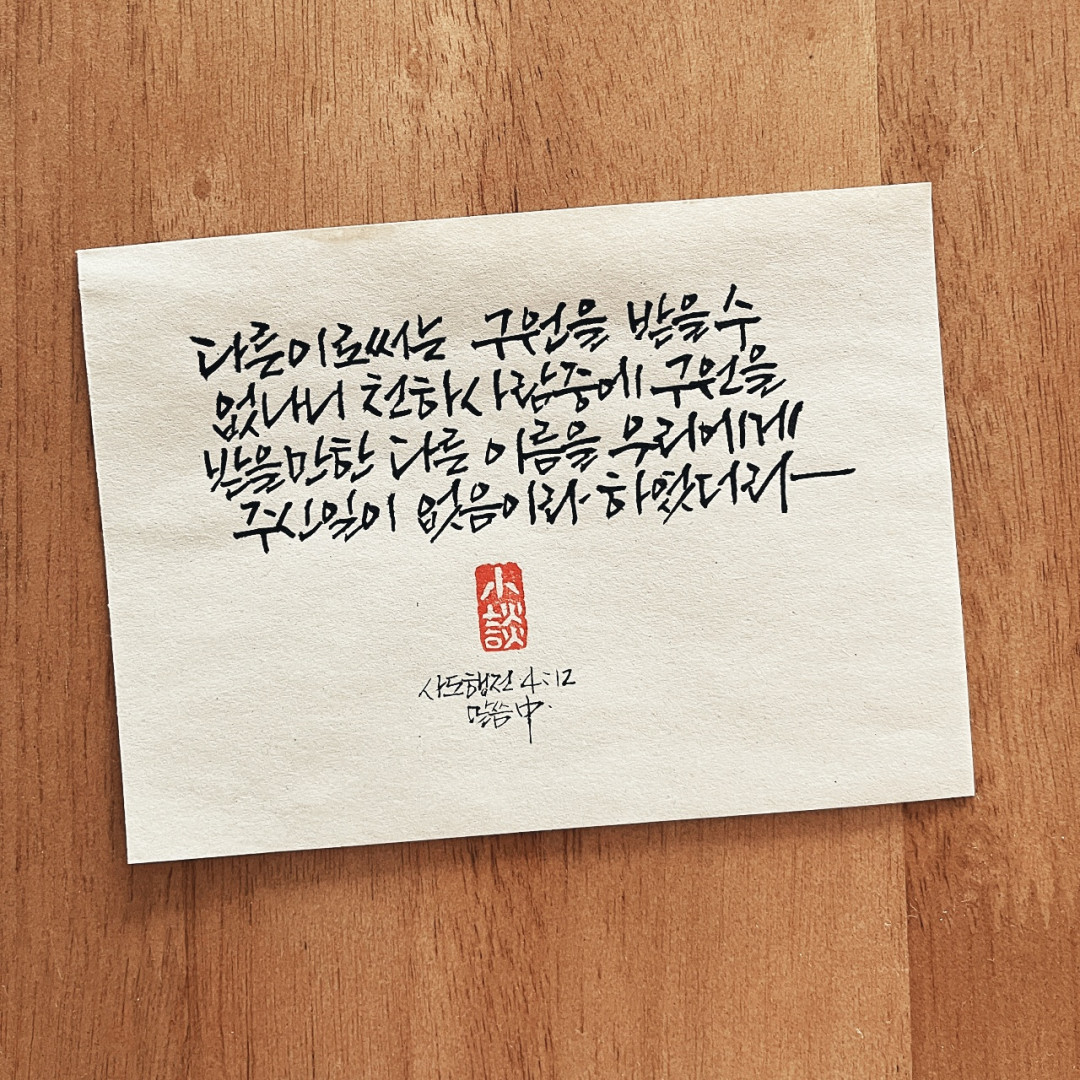 다른이로써는 구원을 받을수
없나니 천하사람중에 구원을
받을만한 다른 이름을 우리에게
주신일이 없음이라 하였더라
小談
사도행전 4:12
말씀中.